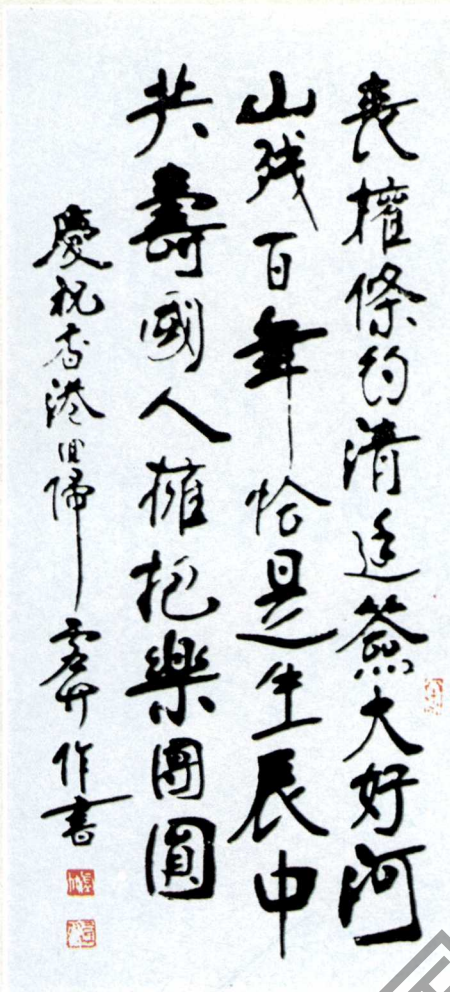 喪權條約清廷簽大好河
山残百年恰是生辰中
共壽國人擁抱樂團圓
慶祝香港回歸 作書